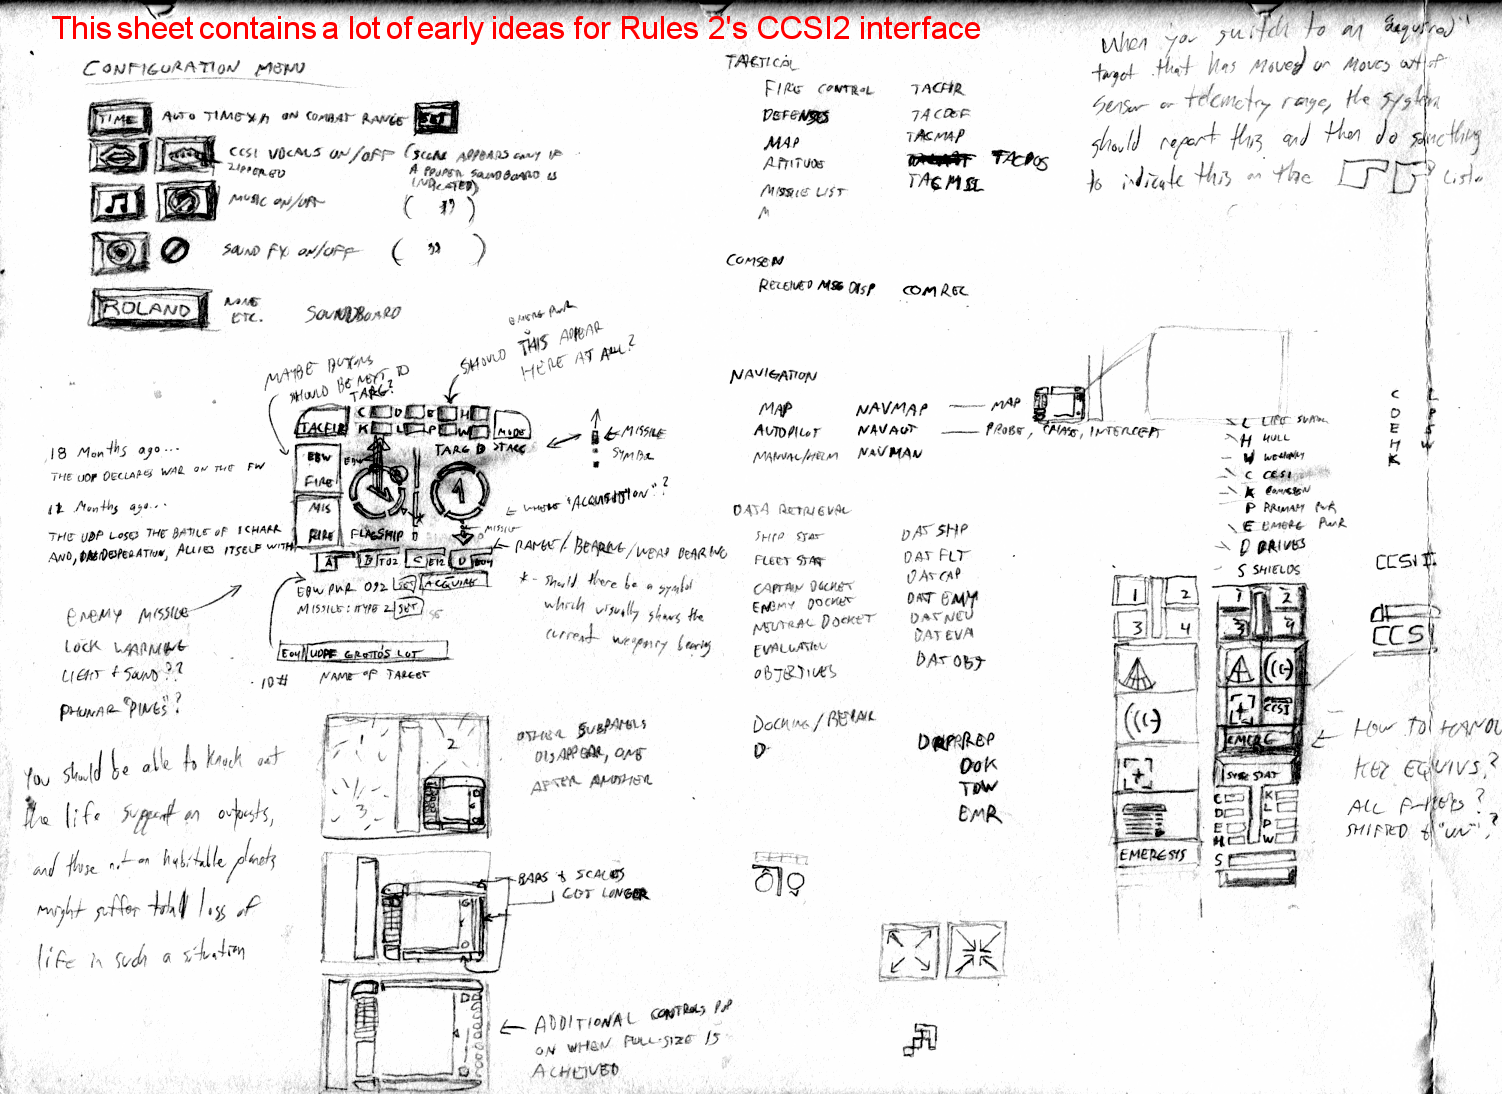 This sheet contains a lot of early ideas for Rules 2's CCSI2 interface
CONFIGURATION MENU
TIME
AUTO TIMEX/1 ON COMBAT RANGE
SET
CCSI VOCALS ON/OFF
ZIPPERED
(SCORE APPEARS ONLY IF
A PROPER SOUNDBOARD IS
INDICATED)
MUSIC ON/OFF
( " )
SOUND FX ON/OFF
( " )
ROLAND
NONE
ETC.
SOUNDBOARD
TACTICAL
FIRE CONTROL TACFIR
DEFENSES TACDEF
MAP TACMAP
APTITUDE TACPOS
MISSILE LIST TACMSL
M
COMSEN
RECEIVED MSG DISP COMREC
NAVIGATION
MAP NAVMAP — MAP
AUTOPILOT NAVAUT — PROBE, PHASE, INTERCEPT
MANUAL/HELM NAVMAN
DATA RETRIEVAL
SHIP STAT DATSHP
FLEET STAT DATFLT
CAPTAIN DOCKET DATCAP
ENEMY DOCKET DATEMY
NEUTRAL DOCKET DATNEU
EVALUATION DATEVA
OBJECTIVES DATOBJ
DOCKING/REPAIR
D
DRPREP
DOK
TOW
EMR
When you switch to an "acquired"
target that has moved or moves out of
sensor or telemetry range, the system
should report this and then do something
to indicate this on the
list.
MAYBE BUTTONS
SHOULD BE NEXT TO
TARG?
EMERG PWR
SHOULD THIS APPEAR
HERE AT ALL?
TACFIR
C D E H
K L P W
MODE
EBW
FIRE
MIS
FIRE
EBW
TARG D STARG
FLAGSHIP
1
MISSILE
A
B T02
C E12
D E04
EBW PWR 092 SET ACQUIRE
MISSILE: TYPE 2 SET
E04 UDPF GROTIO'S LOT
ID#
NAME OF TARGET
MISSILE
SYMBOL
WHERE "ACQUISITION"?
RANGE/BEARING/WEAP BEARING
* - should there be a symbol
which visually shows the
current weaponry bearing
18 Months ago...
THE UDP DECLARES WAR ON THE FW
12 Months ago...
THE UDP LOSES THE BATTLE OF ICHARR
AND, IN DESPERATION, ALLIES ITSELF WITH
ENEMY MISSILE
LOCK WARNING
LIGHT & SOUND??
PHUNAR "PINGS"?
You should be able to knock out
the life support on outposts,
and those not on habitable planets
might suffer total loss of
life in such a situation
1
2
3
OTHER SUBPANELS
DISAPPEAR, ONE
AFTER ANOTHER
BARS & SCALES
GET LONGER
ADDITIONAL CONTROLS POP
ON WHEN FULL-SIZE IS
ACHEIVED
L LIFE SUPP.
H HULL
W WEAPONRY
C CCSI
K COMSEN
P PRIMARY PWR
E EMERG PWR
D DRIVES
S SHIELDS
C L
D P
E S
H W
K
1 2
3 4
EMERGSYS
1 2
3 4
CCSI
EMERG
SYSE STAT
C K
D L
E P
H W
S
CCSI I
CCSI
HOW TO HANDLE
KEY EQUIVS.?
ALL F-KEYS?
SHIFTED & "UN"?